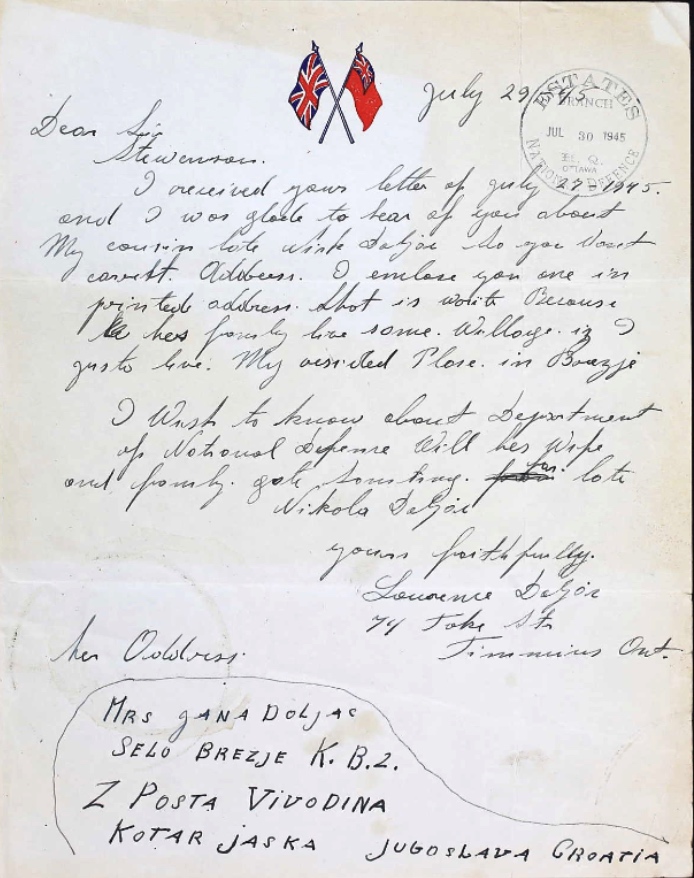 July 29 1945
ESTATES
BRANCH
JUL 30 1945
H. Q.
OTTAWA
NATIONAL DEFENCE
Dear Sir
Stewenson.
I received yours letter of july 27-1945.
and I was glade to hear of you about
My cousin late Doljac So you Want
corett. Address. I enclose you one in
printed address. that is Because
hes family live some. Willage. in I
justo live. My Plase. in Brezje
I Wish to know about Department
of National Defense Will hes Wife
and family. gate Somting. for. late
Nikola Doljac
yours faithfully.
Lawrence Doljac
74 Toke Str
Timmins Ont.
her Address.
MRS JANA DOLJAC
SELO BREZJE K. B.2.
Z POSTA VIVODINA
KOTAR JASKA JUGOSLAVA CROATIA